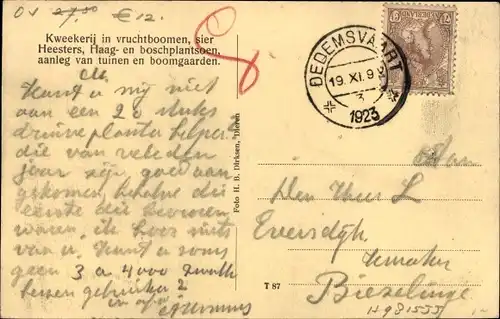 04 27,50 € 12.
Kweekerij in vruchtboomen, sier
Heesters, Haag- en boschplantsoen,
aanleg van tuinen en boomgaarden.
DEDEMSVAART
19.XI.9
1923
NEDERLAND
Kunt u mij niet
aan een 20 stuks
druive planten helpen
die van veleden
jaar zijn goed aan
gekomen, behalve die
eerste die bevroren
waren, ik hoor niets
van u. Kunt u soms
geen 3 a 4000 zwarte
bessen gebruiken
Foto H. B. Dirksen, Dieren
T 87
Aan
Den Heer L
Eversdijk
Kweeker
Biezelinge
H981555